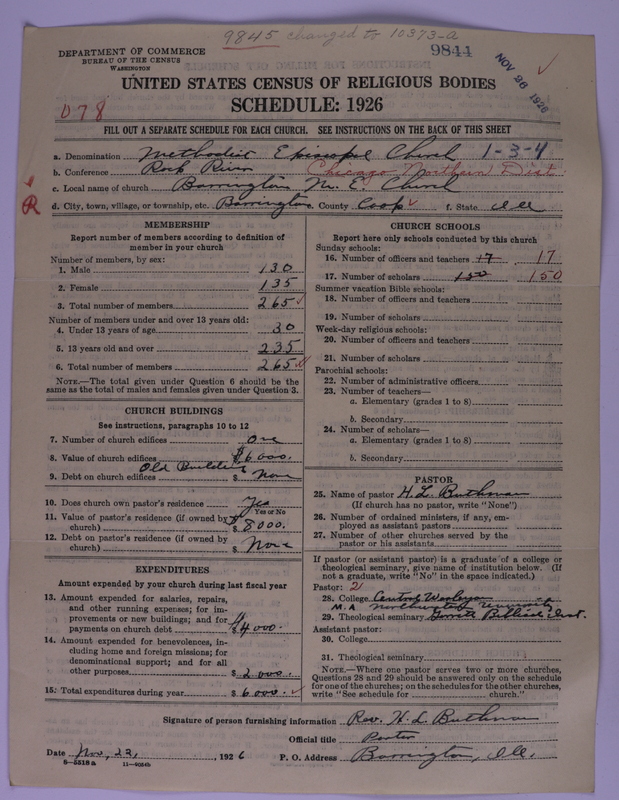 9845 changed to 10373-a
DEPARTMENT OF COMMERCE
BUREAU OF THE CENSUS
WASHINGTON
9844
NOV 26 1926
UNITED STATES CENSUS OF RELIGIOUS BODIES
078
SCHEDULE: 1926
FILL OUT A SEPARATE SCHEDULE FOR EACH CHURCH. SEE INSTRUCTIONS ON THE BACK OF THIS SHEET
a. Denomination Methodist Episcopal Church 1-3-4
b. Conference Rock River Chicago Northern Dist
c. Local name of church Barrington M. E. Church
R
d. City, town, village, or township, etc. Barrington. County Cook f. State Ill
MEMBERSHIP
Report number of members according to definition of
member in your church
Number of members, by sex:
1. Male 130
2. Female 135
3. Total number of members 265
Number of members under and over 13 years old:
4. Under 13 years of age 30
5. 13 years old and over 235
6. Total number of members 265
NOTE.—The total given under Question 6 should be
same as the total of males and females given under Question 3.
CHURCH BUILDINGS
See instructions, paragraphs 10 to 12
7. Number of church edifices One
8. Value of church edifices $6000.
Old Building
9. Debt on church edifices $ None
10. Does church own pastor's residence Yes
Yes or No
11. Value of pastor's residence (if owned by
church) $ 8000.
12. Debt on pastor's residence (if owned by
church) $ None
EXPENDITURES
Amount expended by your church during last fiscal year
13. Amount expended for salaries, repairs,
and other running expenses; for im-
provements or new buildings; and for
payments on church debt $ 4000.
14. Amount expended for benevolences, in-
cluding home and foreign missions; for
denominational support; and for all
other purposes $ 2000.
15. Total expenditures during year $ 6000.
CHURCH SCHOOLS
Report here only schools conducted by this church
Sunday schools:
16. Number of officers and teachers 17 17
17. Number of scholars 150 150
Summer vacation Bible schools:
18. Number of officers and teachers
19. Number of scholars
Week-day religious schools:
20. Number of officers and teachers
21. Number of scholars
Parochial schools:
22. Number of administrative officers
23. Number of teachers—
a. Elementary (grades 1 to 8)
b. Secondary
24. Number of scholars—
a. Elementary (grades 1 to 8)
b. Secondary
PASTOR
25. Name of pastor H. L. Buthman
(If church has no pastor, write "None")
26. Number of ordained ministers, if any, em-
ployed as assistant pastors
27. Number of other churches served by the
pastor or his assistants
If pastor (or assistant pastor) is a graduate of a college or
theological seminary, give name of institution below. (If
not a graduate, write "No" in the space indicated.)
Pastor: 2
28. College Central Wesleyan
M.A Northwestern University
29. Theological seminary Garrett Biblical Inst.
Assistant pastor:
30. College
31. Theological seminary
NOTE.—Where one pastor serves two or more churches,
Questions 28 and 29 should be answered only on the schedule
for one of the churches; on the schedules for the other churches,
write "See schedule for church."
Signature of person furnishing information Rev. H. L. Buthman
Official title Pastor
Date Nov, 23, 1926 P. O. Address Barrington, Ill.
8-5518a 11-9034b